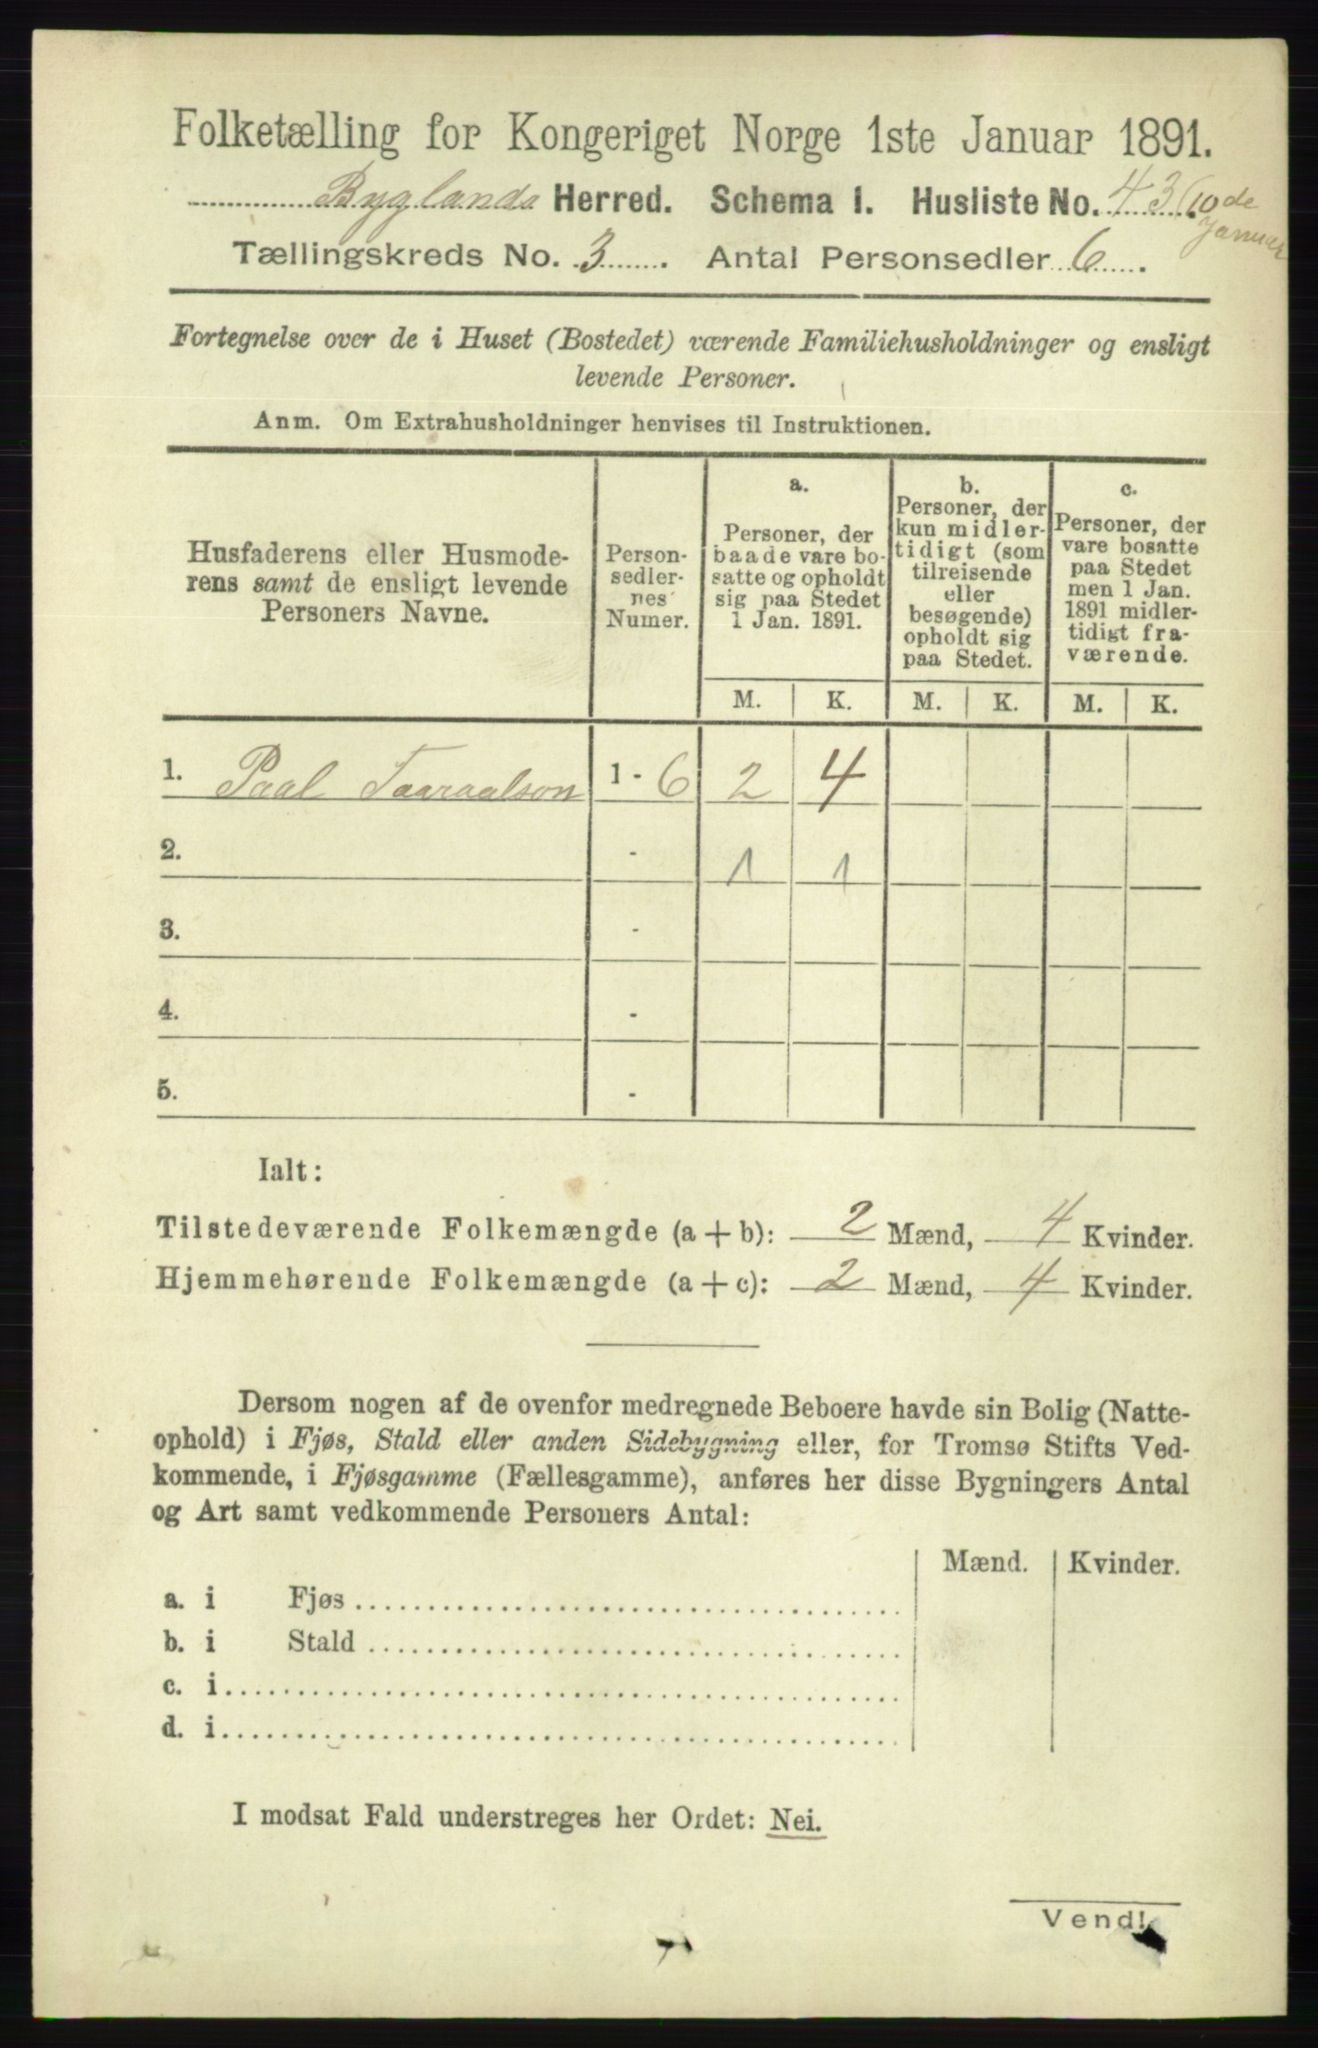 Folketælling for Kongeriget Norge 1ste Januar 1891.
Byglands Herred. Schema I. Husliste No. 43 (10de
Januar
Tællingskreds No. 3. Antal Personsedler 6.
Fortegnelse over de i Huset (Bostedet) værende Familiehusholdninger og ensligt
levende Personer.
Anm. Om Extrahusholdninger henvises til Instruktionen.
Husfaderens eller Husmode-
rens samt de ensligt levende
Personers Navne.
Person-
sedler-
nes
Numer.
a.
Personer, der
baade vare bo-
satte og opholdt
sig paa Stedet
1 Jan. 1891.
b.
Personer, der
kun midler-
tidigt (som
tilreisende
eller
besøgende)
opholdt sig
paa Stedet.
c.
Personer, der
vare bosatte
paa Stedet
men 1 Jan.
1891 midler-
tidigt fra-
værende.
M. K. M. K. M. K.
1. Paal Taaraalson 1 - 6 2 4
2. - 1 1
3. -
4. -
5. -
Ialt:
Tilstedeværende Folkemængde (a + b): 2 Mænd, 4 Kvinder.
Hjemmehørende Folkemængde (a + c): 2 Mænd, 4 Kvinder.
Dersom nogen af de ovenfor medregnede Beboere havde sin Bolig (Natte-
ophold) i Fjøs, Stald eller anden Sidebygning eller, for Tromsø Stifts Ved-
kommende, i Fjøsgamme (Fællesgamme), anføres her disse Bygningers Antal
og Art samt vedkommende Personers Antal:
Mænd. Kvinder.
a. i Fjøs
b. i Stald
c. i
d. i
I modsat Fald understreges her Ordet: Nei.
Vend!